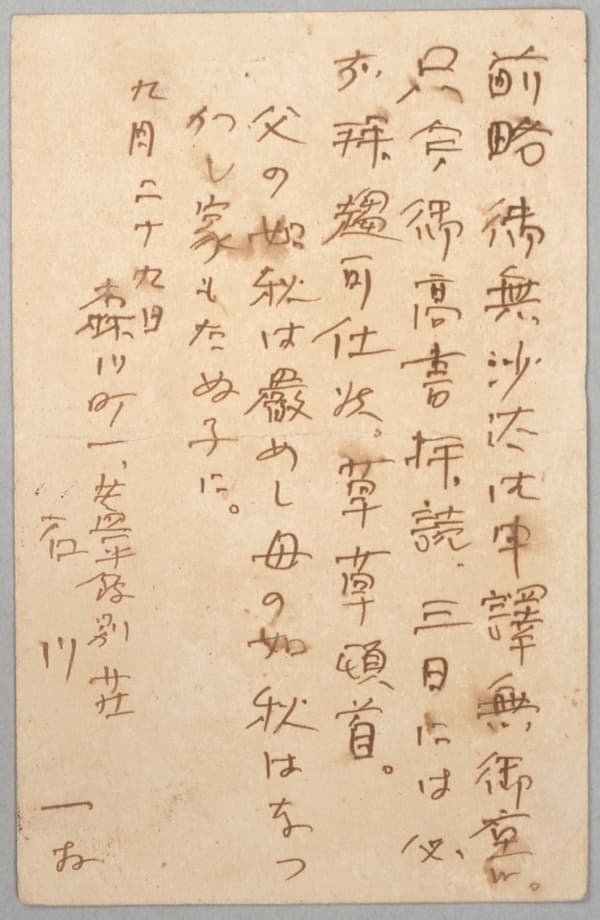 前略 御無沙汰仕申譯無御座候。
只今御高書拝読、三日には必
ず拝趨可仕候。草草頓首。
父の如秋は厳めし母の如秋はなつ
かし家もたぬ子に。
九月二十九日
森川町一、蓋平館別荘
石川 一